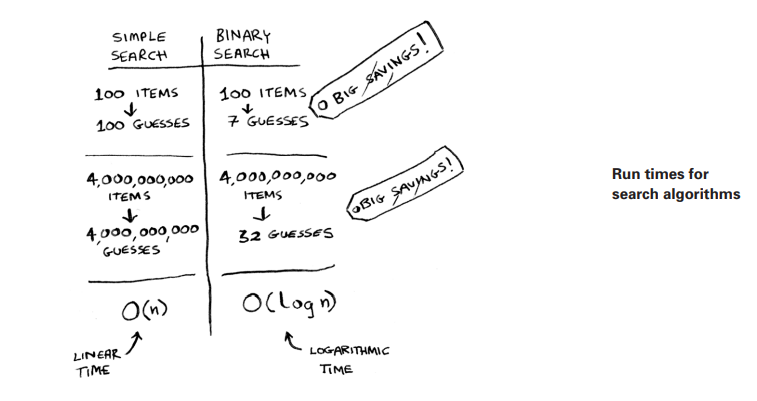 SIMPLE
SEARCH
BINARY
SEARCH
100 ITEMS
↓
100 GUESSES
100 ITEMS
↓
7 GUESSES
BIG SAVINGS!
4,000,000,000
ITEMS
↓
4,000,000,000
GUESSES
4,000,000,000
ITEMS
↓
32 GUESSES
BIG SAVINGS!
O(n)
O(log n)
LINEAR
TIME
LOGARITHMIC
TIME
Run times for
search algorithms